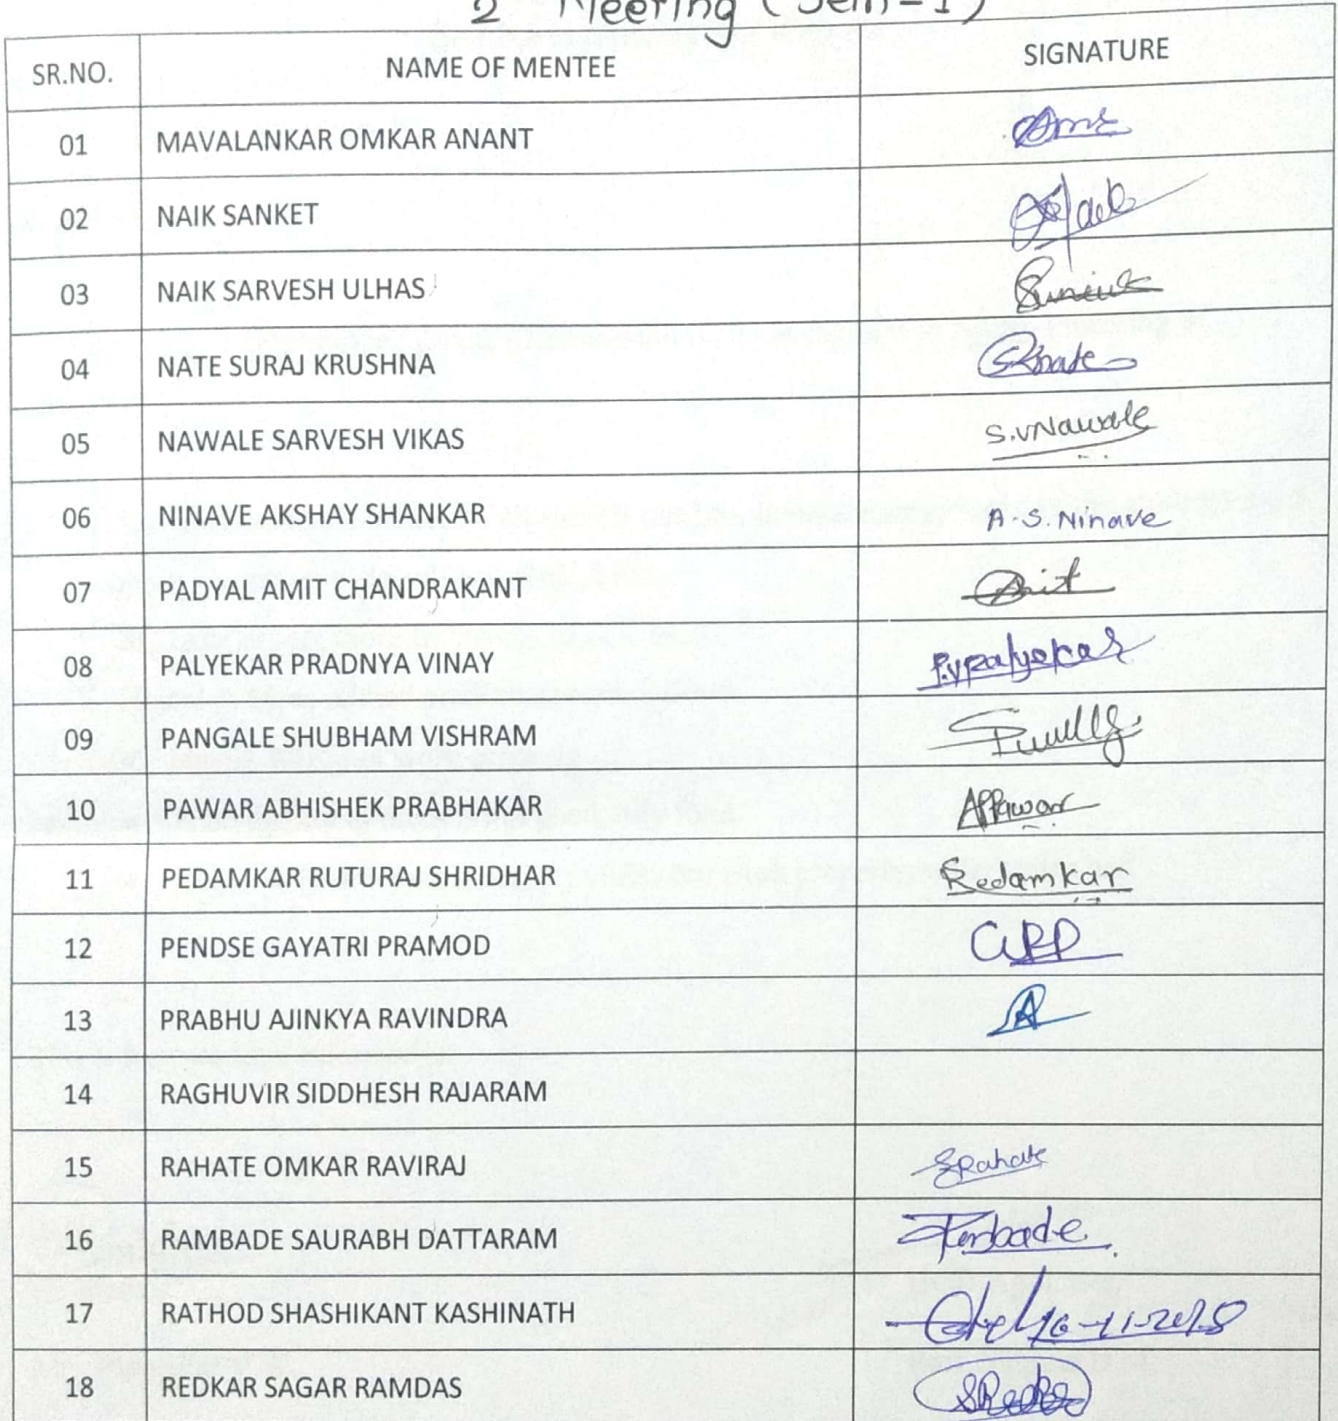 2 Meeting (Sem-I)
SR.NO. NAME OF MENTEE SIGNATURE
01 MAVALANKAR OMKAR ANANT
02 NAIK SANKET
03 NAIK SARVESH ULHAS
04 NATE SURAJ KRUSHNA
05 NAWALE SARVESH VIKAS S.VNawale
06 NINAVE AKSHAY SHANKAR A.S.Ninave
07 PADYAL AMIT CHANDRAKANT
08 PALYEKAR PRADNYA VINAY P.VPalyekar
09 PANGALE SHUBHAM VISHRAM
10 PAWAR ABHISHEK PRABHAKAR APPawar
11 PEDAMKAR RUTURAJ SHRIDHAR
12 PENDSE GAYATRI PRAMOD GPP
13 PRABHU AJINKYA RAVINDRA
14 RAGHUVIR SIDDHESH RAJARAM
15 RAHATE OMKAR RAVIRAJ
16 RAMBADE SAURABH DATTARAM
17 RATHOD SHASHIKANT KASHINATH 16-11-2018
18 REDKAR SAGAR RAMDAS